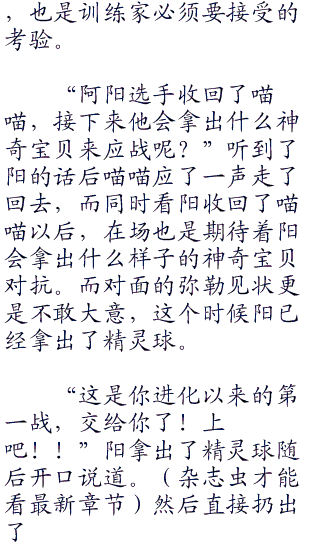 ，也是训练家必须要接受的
考验。
“阿阳选手收回了喵
喵，接下来他会拿出什么神
奇宝贝来应战呢？”听到了
阳的话后喵喵应了一声走了
回去，而同时看阳收回了喵
喵以后，在场也是期待着阳
会拿出什么样子的神奇宝贝
对抗。而对面的弥勒见状更
是不敢大意，这个时候阳已
经拿出了精灵球。
“这是你进化以来的第
一战，交给你了！上
吧！！”阳拿出了精灵球随
后开口说道。（杂志虫才能
看最新章节）然后直接扔出
了